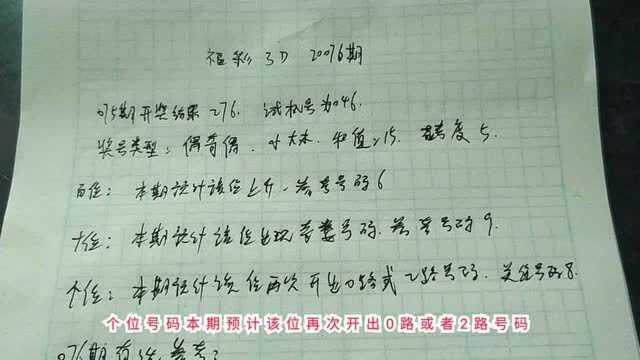 福彩3D 20076期
075期开奖结果276. 试机号为046.
奖号类型：偶奇偶. 小大大. 和值：15. 跨度5.
百位：本期预计该位上升. 参考号码6
十位：本期预计该位出现奇数号码. 参考号码9.
个位：本期预计该位再次开出0路或2路号码. 关注号码8.
个位号码本期预计该位再次开出0路或者2路号码
076期